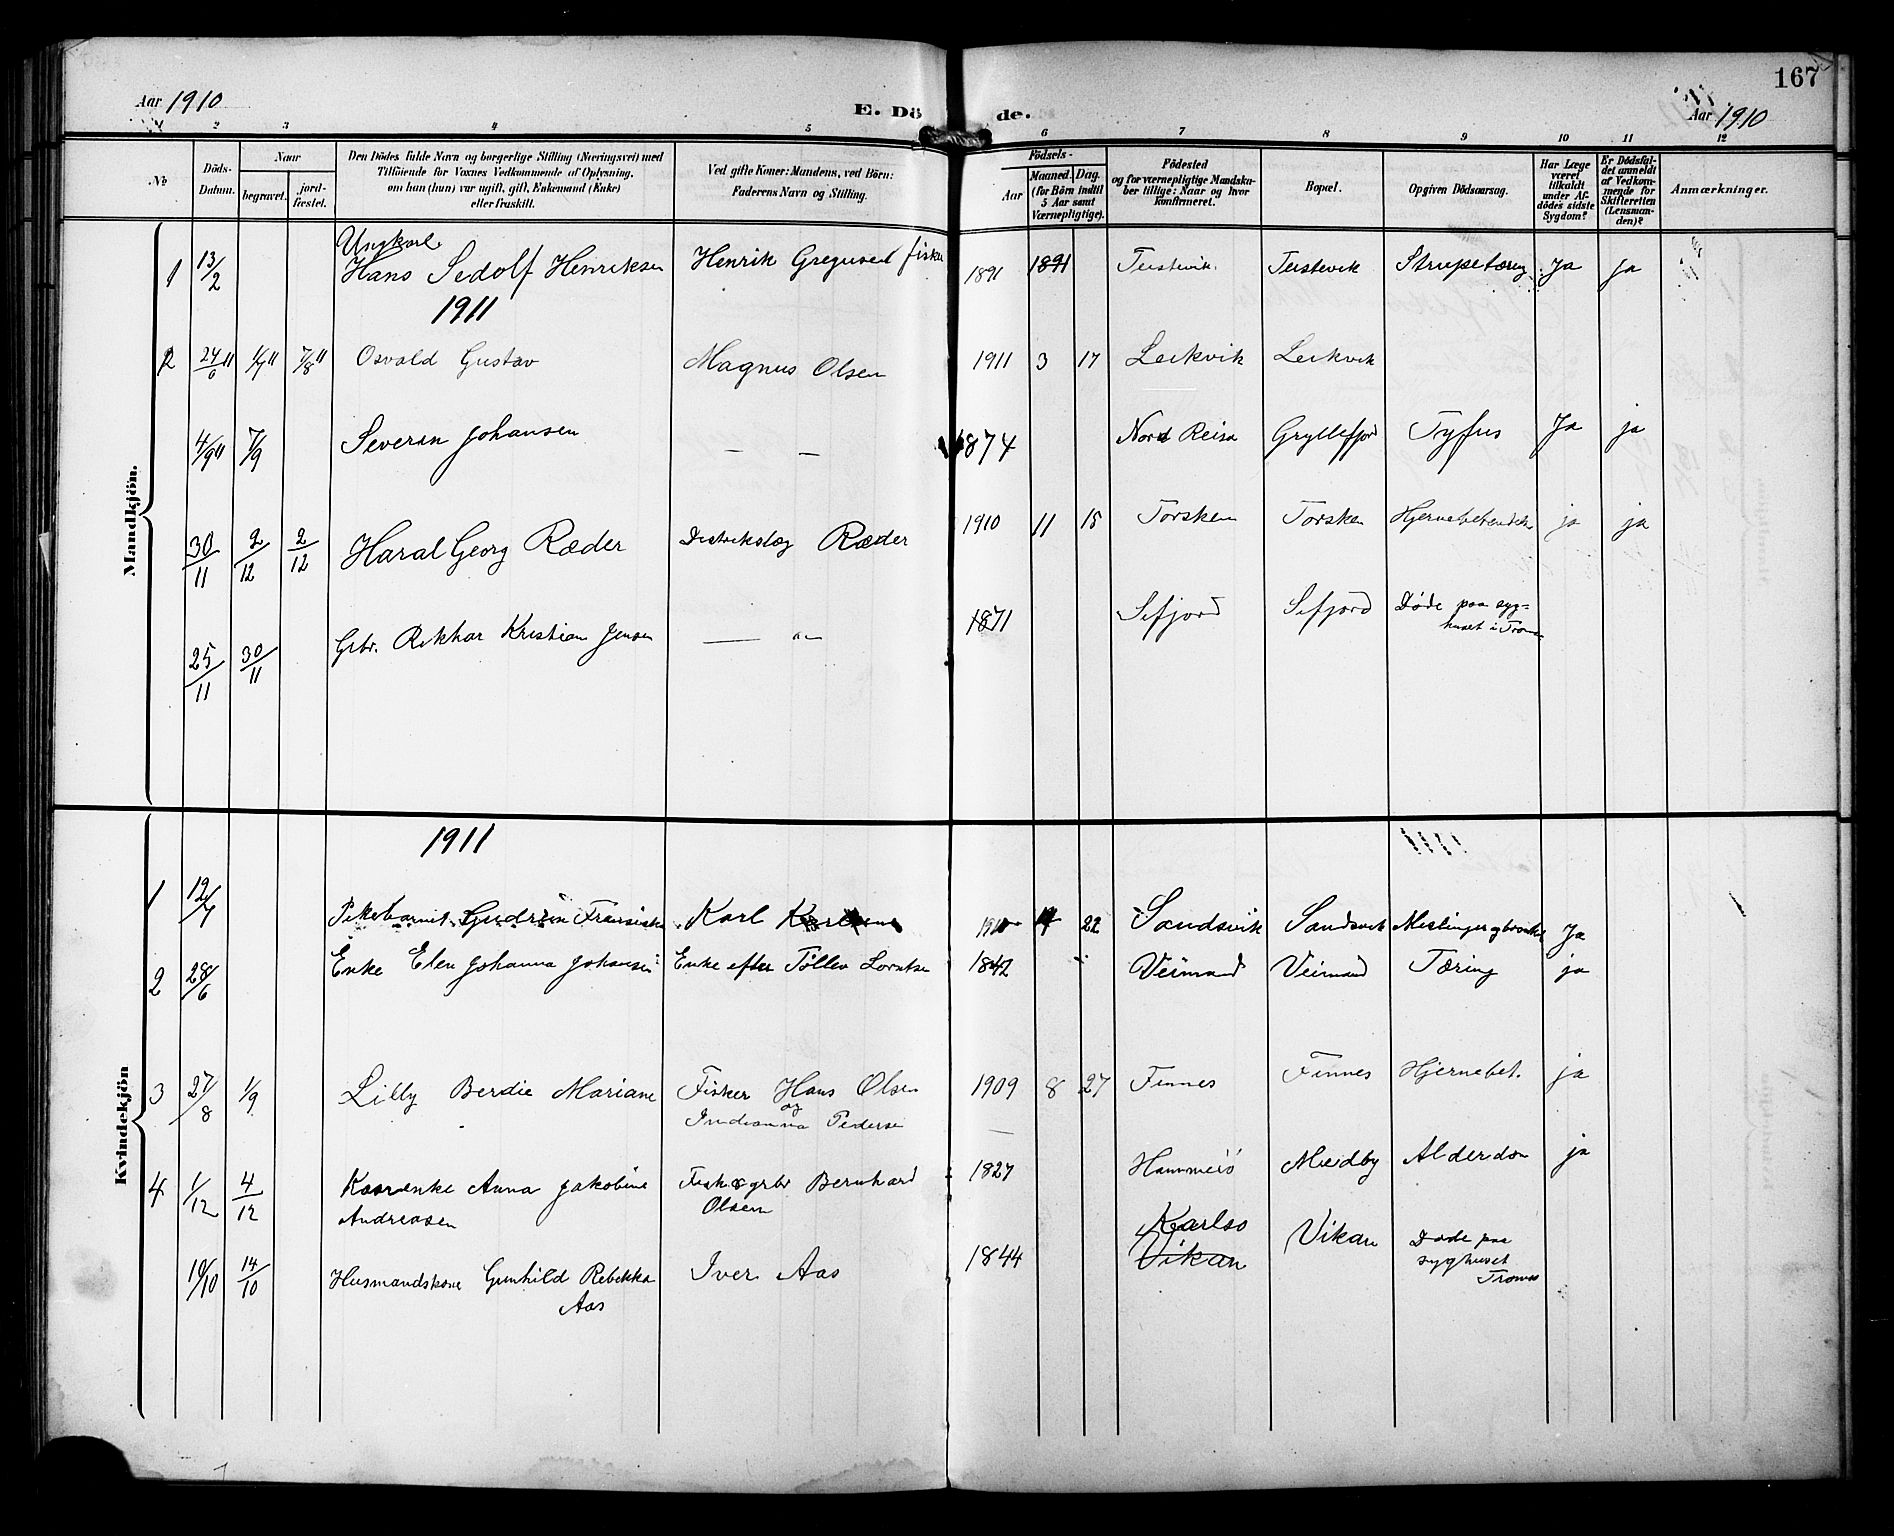 167
Aar 1910
E. Dö de.
Aar 1910
2 3 4 5 6 7 8 9 10 11 12
No.
Döds-Datum.
Naar
begravet.
jord-fæstet.
Den Dödes fulde Navn og borgerlige Stilling (Næringsvei) med
Tilföiende for Voxnes Vedkommende af Oplysning,
om han (hun) var ugift, gift, Enkemand (Enke)
eller fraskilt.
Ved gifte Koner: Mandens, ved Börn:
Faderens Navn og Stilling.
Födsels-
Aar
Maaned. Dag.
(for Börn indtil
5 Aar samt
Værnepligtige).
Födested
og for værnepligtige Mandska-
ber tillige: Naar og hvor
konfirmeret.
Bopæl.
Opgiven Dödsaarsag.
Har Læge
været
tilkaldt
under Af-
dödes sidste
Sygdom?
Er Dödsfal-
det anmeldt
af Vedkom-
mende for
Skifteretten
(Lensman-
den)?
Anmærkninger.
Mandkjön.
Ungkarl
1 13/2 Hans Sedolf Henriksen Henrik Gregusen fisker 1891 1891 Teistevik Teistevik Strupetæring Ja ja
1911
2 24/6 11 1/7 11 7/8 11 Osvald Gustav Magnus Olsen 1911 3 17 Leikvik Leikvik
4/9 11 7/9 Severin Johansen — — 1874 Nord Reisa Gryllefjord Tyfus Ja ja
30/11 2/12 2/12 Haral Georg Ræder Distrikslæg Ræder 1910 11 15 Torsken Torsken ja ja
25/11 30/11 Gbr. Rikhar Kristian Jensen — 1871 Sifjord Sifjord Døde paa syg=
huset i Troms
Kvindekjön
1911
1 12/4 Pikebarnet Gudrun Fransiska Karl 22 Sandsvik Sandsvik Meslinger og bronkit Ja
2 28/6 Enke Elen Johanna Johansen Enke efter Tollev Lorntsen 1842 Veimand Veimand Tæring ja
3 27/8 1/9 Lilly Berdie Mariane Fisker Hans Olsen 1909 8 27 Finnes Finnes Hjernebet. ja
og
Indianna Pedersen
4 1/12 4/12 Kaarenke Anna Jakobine Fisk & grbr Bernhard 1827 Hammerö Medby Alderdom ja
Andreasen Olsen
10/10 14/10 Husmandskone Gunhild Rebekka Iver Aas 1844 Karlsö Vikan Døde paa
Vikan syghuset
Aas Tromsø